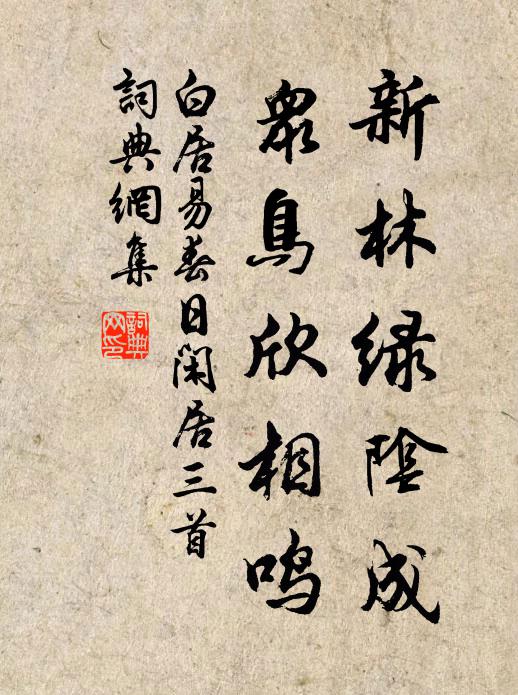 新林綠陰成
衆鳥欣相鳴
白居易春日閑居三首
詞典網集
詞典网印